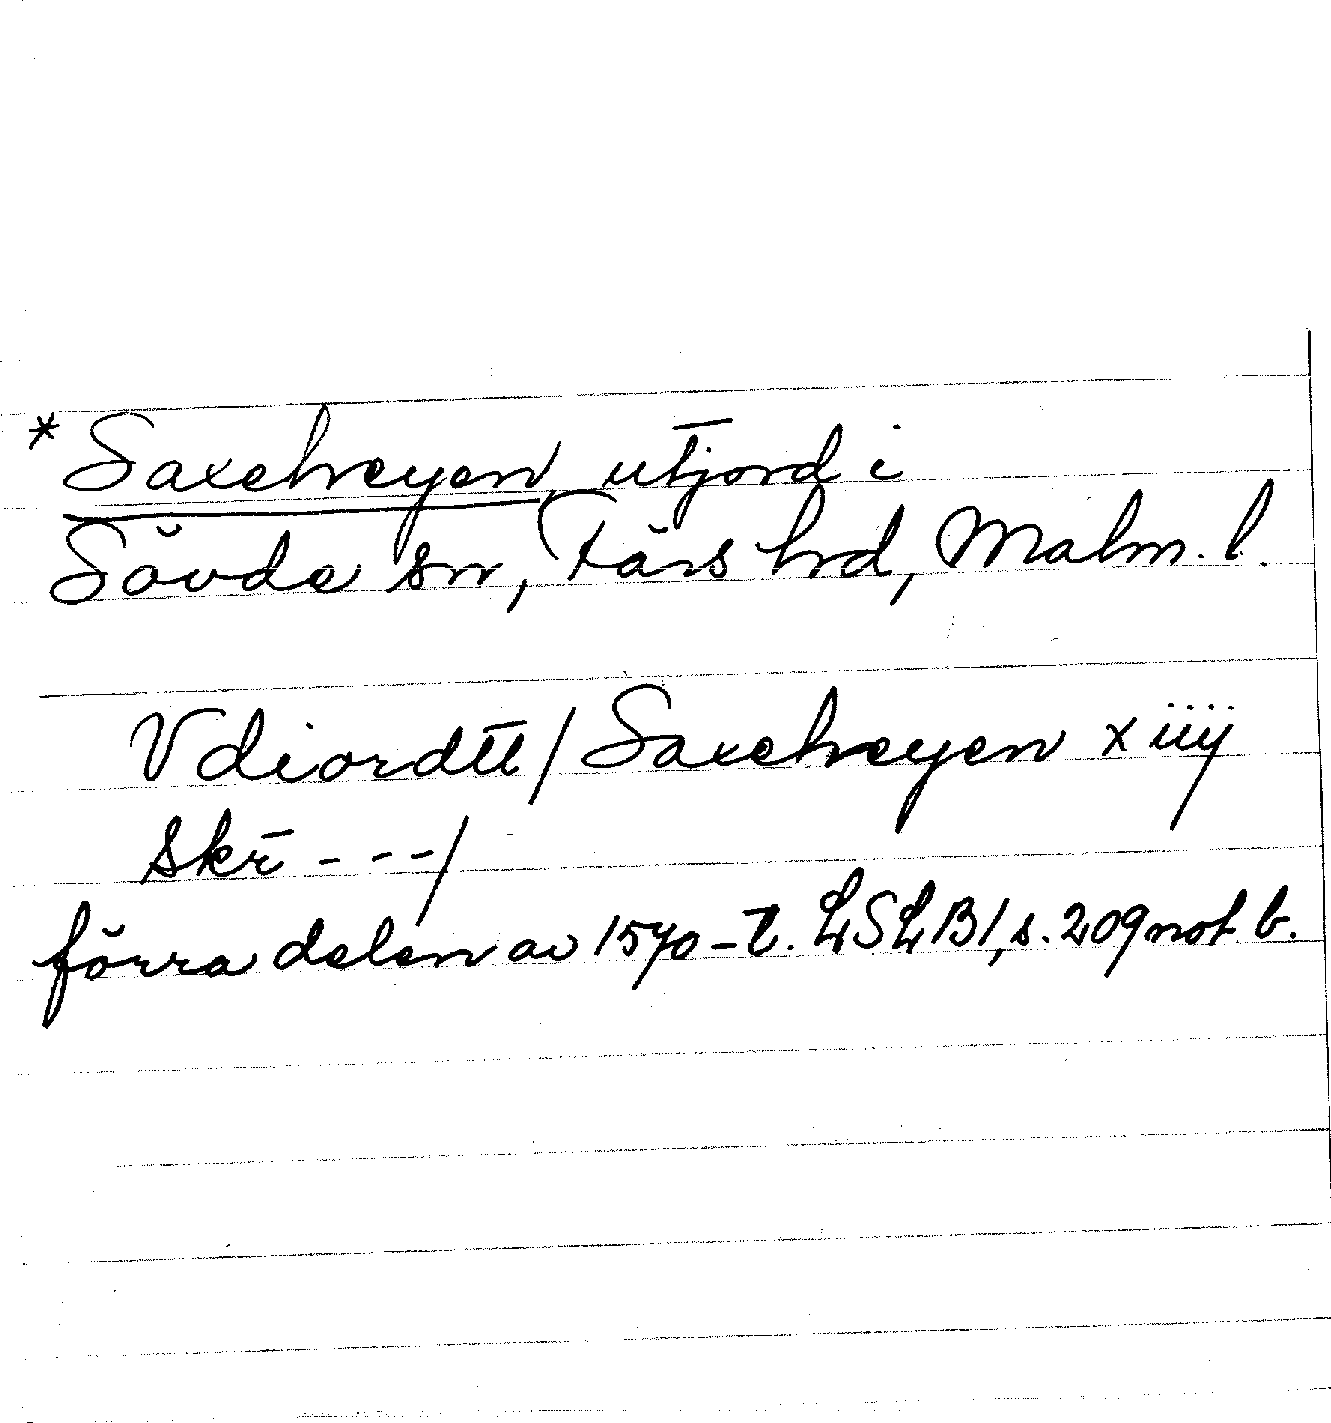 * Saxehveyen, utjord i
Sövde sn, Färs hd, Malm. l.
Vdiordtt / Saxehveyen x iiij
skr̄ - - - /
förra delen av 1570-t. LSLB1, s. 209 not b.